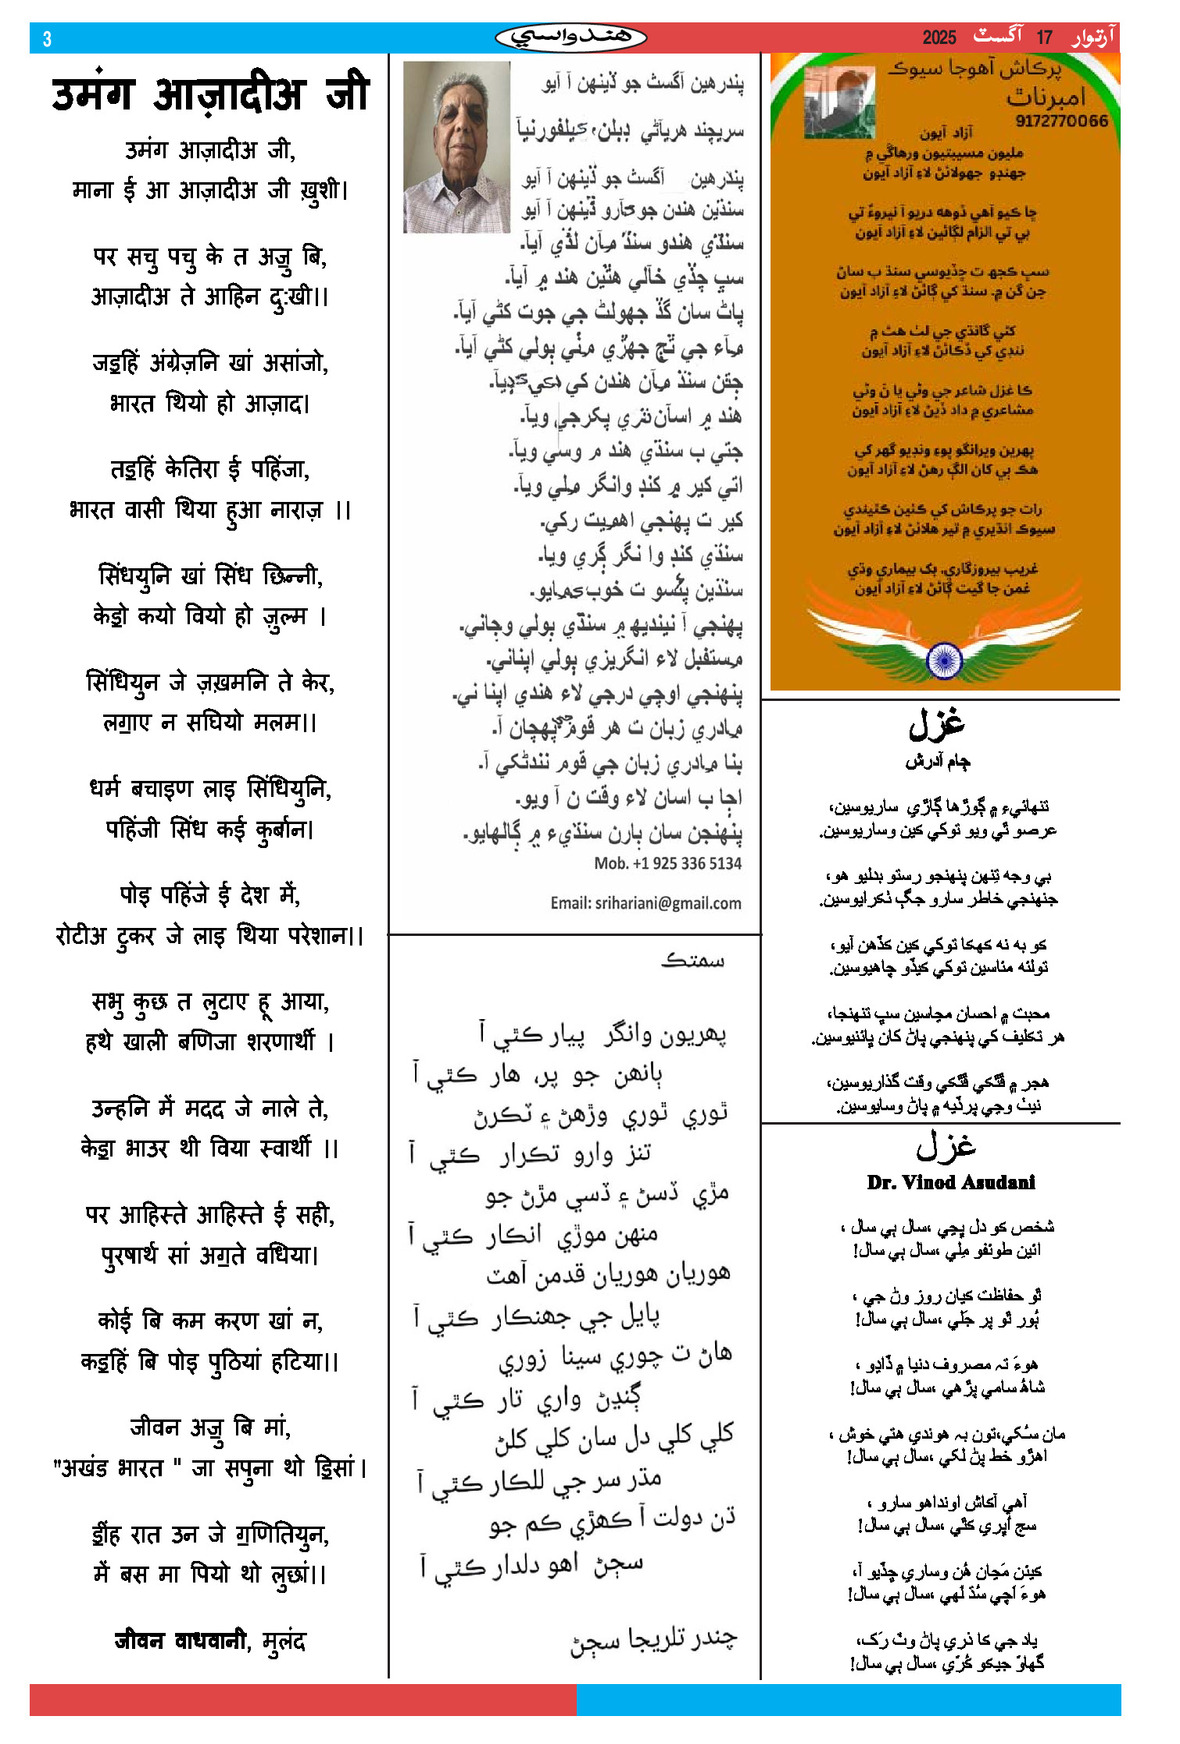 3
هندواسي
آرتوار 17 آگسٽ 2025
उमंग आज़ादीअ जी
उमंग आज़ादीअ जी,
माना ई आ आज़ादीअ जी ख़ुशी।
पर सचु पचु के त अजु॒ बि,
आज़ादीअ ते आहिन दु:खी।।
जड॒हिं अंग्रेज़नि खां असांजो,
भारत थियो हो आज़ाद।
तड॒हिं केतिरा ई पहिंजा,
भारत वासी थिया हुआ नाराज़ ।।
सिंधयुनि खां सिंध छिन्नी,
केड॒ो कयो वियो हो ज़ुल्म ।
सिंधियुन जे ज़ख़मनि ते केर,
लगा॒ए न सघियो मलम।।
धर्म बचाइण लाइ सिंधियुनि,
पहिंजी सिंध कई कुर्बान।
पोइ पहिंजे ई देश में,
रोटीअ टुकर जे लाइ थिया परेशान।।
सभु कुछ त लुटाए हू आया,
हथे खाली बणिजा शरणार्थी ।
उन्हनि में मदद जे नाले ते,
केड॒ा भाउर थी विया स्वार्थी ।।
पर आहिस्ते आहिस्ते ई सही,
पुरषार्थ सां अग॒ते वधिया।
कोई बि कम करण खां न,
कड॒हिं बि पोइ पुठियां हटिया।।
जीवन अजु॒ बि मां,
"अखंड भारत " जा सपुना थो ड॒िसां।
ड॒ींह रात उन जे ग॒णितियुन,
में बस मा पियो थो लुछां।।
जीवन वाधवानी, मुलंद
پندرهين آگسٽ جو ڏينهن آ آيو
سريچند هرياڻي ڊبلن، ڪيلفورنيا
پنڌرهين آگسٽ جو ڏينهن آ آيو
سنڌين هندن جو ڪارو ڏينهن آ آيو
سنڌي هندو سنڌ مان لڏي آيا.
سڀ ڇڏي خالي هٿين هند ۾ آيا.
پاڻ سان گڏ جهولٽ جي جوت کڻي آيا.
ماءُ جي ٿڃ جهڙي مٺي ٻولي کڻي آيا.
هند ۾ اسان ٽڙي پکڙجي ويا.
جتي ب سنڌي هند ۾ وسي ويا.
اتي کير ۾ کنڊ وانگر ملي ويا.
کير ت پهنجي اهميت رکي.
سنڌي کنڊ وا نگر ڳري ويا.
سنڌين پئسو ت خوب ڪمايو.
پهنجي آ نينديهه ۾ سنڌي ٻولي وڃائي.
مستقبل لاءِ انگريزي ٻولي اپنائي.
پنهنجي اوچي درجي لاءِ هندي اپنا ئي.
مادري زبان ت هر قوم جي پهچان آ.
بنا مادري زبان جي قوم ننڍڙي آ.
اڃا ب اسان لاءِ وقت ن آ ويو.
پنهنجن سان ٻارن سنڌيءَ ۾ ڳالهايو.
Mob. +1 925 336 5134
Email: srihariani@gmail.com
سمتڪ
پهريون وانگر پيار ڪٿي آ
ٻانهن جو پر، هار ڪٿي آ
ٿوري ٿوري وڙهڻ ۽ ٽڪرڻ
تنز وارو تڪرار ڪٿي آ
مڙي ڏسڻ ۽ ڏسي مڙڻ جو
منهن موڙي انڪار ڪٿي آ
هوريان هوريان قدمن آهٽ
پايل جي جهنڪار ڪٿي آ
هاڻ ت چوري سينا زوري
ڳنڍڻ واري تار ڪٿي آ
کلي کلي دل سان کلي کلڻ
مڌر سر جي للڪار ڪٿي آ
ڌن دولت آ ڪهڙي ڪم جو
سڄڻ اهو دلدار ڪٿي آ
چندر تلريجا سڄڻ
پرڪاش آهوجا سيوڪ
امبرناٿ
9172770066
آزاد آيون
مليون مسيبتيون ورهاڱي ۾
جهنڊو جهولائڻ لاءِ آزاد آيون
ڇا ڪيو آهي ڏوهه دريو آ نيروءُ تي
ٻي تي الزام لڳائڻ لاءِ آزاد آيون
سڀ ڪجهه ت ڇڏيوسي سنڌ ب ساڻ
جن گن ۾. سنڌ کي ڳائڻ لاءِ آزاد آيون
کڻي گانڌي جي لٺ هٿ ۾
ننڍي کي ڌڪائڻ لاءِ آزاد آيون
ڪا غزل شاعر جي وڻي يا نَ وڻي
مشاعري ۾ داد ڏيڻ لاءِ آزاد آيون
پهرين ويرانگو پوءِ ونڊيو گهر کي
هڪ ٻي کان الڳ رهڻ لاءِ آزاد آيون
رات جو پرڪاش کي ڪئين ڪٽيندي
سيوڪ انڌيري ۾ تير هلائڻ لاءِ آزاد آيون
غريب بيروزگاري، بک بيماري وڌي
غمن جا گيت ڳائڻ لاءِ آزاد آيون
غزل
ڄام آدرش
تنهائيءَ ۾ ڳوڙها ڳاڙي ساريوسين،
عرصو ٿي ويو توکي ڪين وساريوسين.
بي وجه تِنهن پنهنجو رستو بدليو هو،
جنهنجي خاطر سارو جڳ ٺڪرايوسين.
ڪو به نه ڪهڪا توکي ڪين ڪڏهن آيو،
تولئه مئاسين توکي ڪيڏو چاهيوسين.
محبت ۾ احسان مڃاسين سڀ تنهنجا،
هر تڪليف کي پنهنجي پاڻ کان ڀائنيوسين.
هجر ۾ ڦٿڪي ڦٿڪي وقت گذاريوسين،
نيٺ وڃي پرڏيهه ۾ پاڻ وسايوسين.
غزل
Dr. Vinod Asudani
شخص ڪو دل ڀڃي ،سال ٻي سال ،
ائين طوئفو مِلي ،سال ٻي سال!
ٿو حفاظت ڪيان روز وڻ جي ،
ٻُور ٿو پر جَلي ،سال ٻي سال!
هوءَ تہ مصروف دنيا ۾ ڏاڍو ،
شاهُ سامي پڙهي ،سال ٻي سال!
مان سُکي،تون بہ هوندي هتي خوش ،
اهڙو خط پڻ لکي ،سال ٻي سال!
آهي آڪاش اونداهو سارو ،
سج اُڀري ڪٿي ،سال ٻي سال!
ڪيئن مَڃان هُن وساري ڇڏيو آ،
هوءَ اَچي سُڌ لَهي ،سال ٻي سال!
ياد جي ڪا ذري پاڻ وٽ رَک،
گهاوُ جيڪو ڀُرّي ،سال ٻي سال!